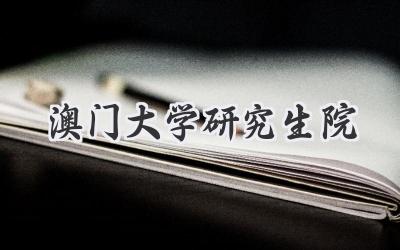 澳门大学研究生院